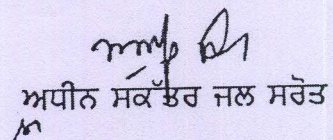 ਅਧੀਨ ਸਕੱਤਰ ਜਲ ਸਰੋਤ